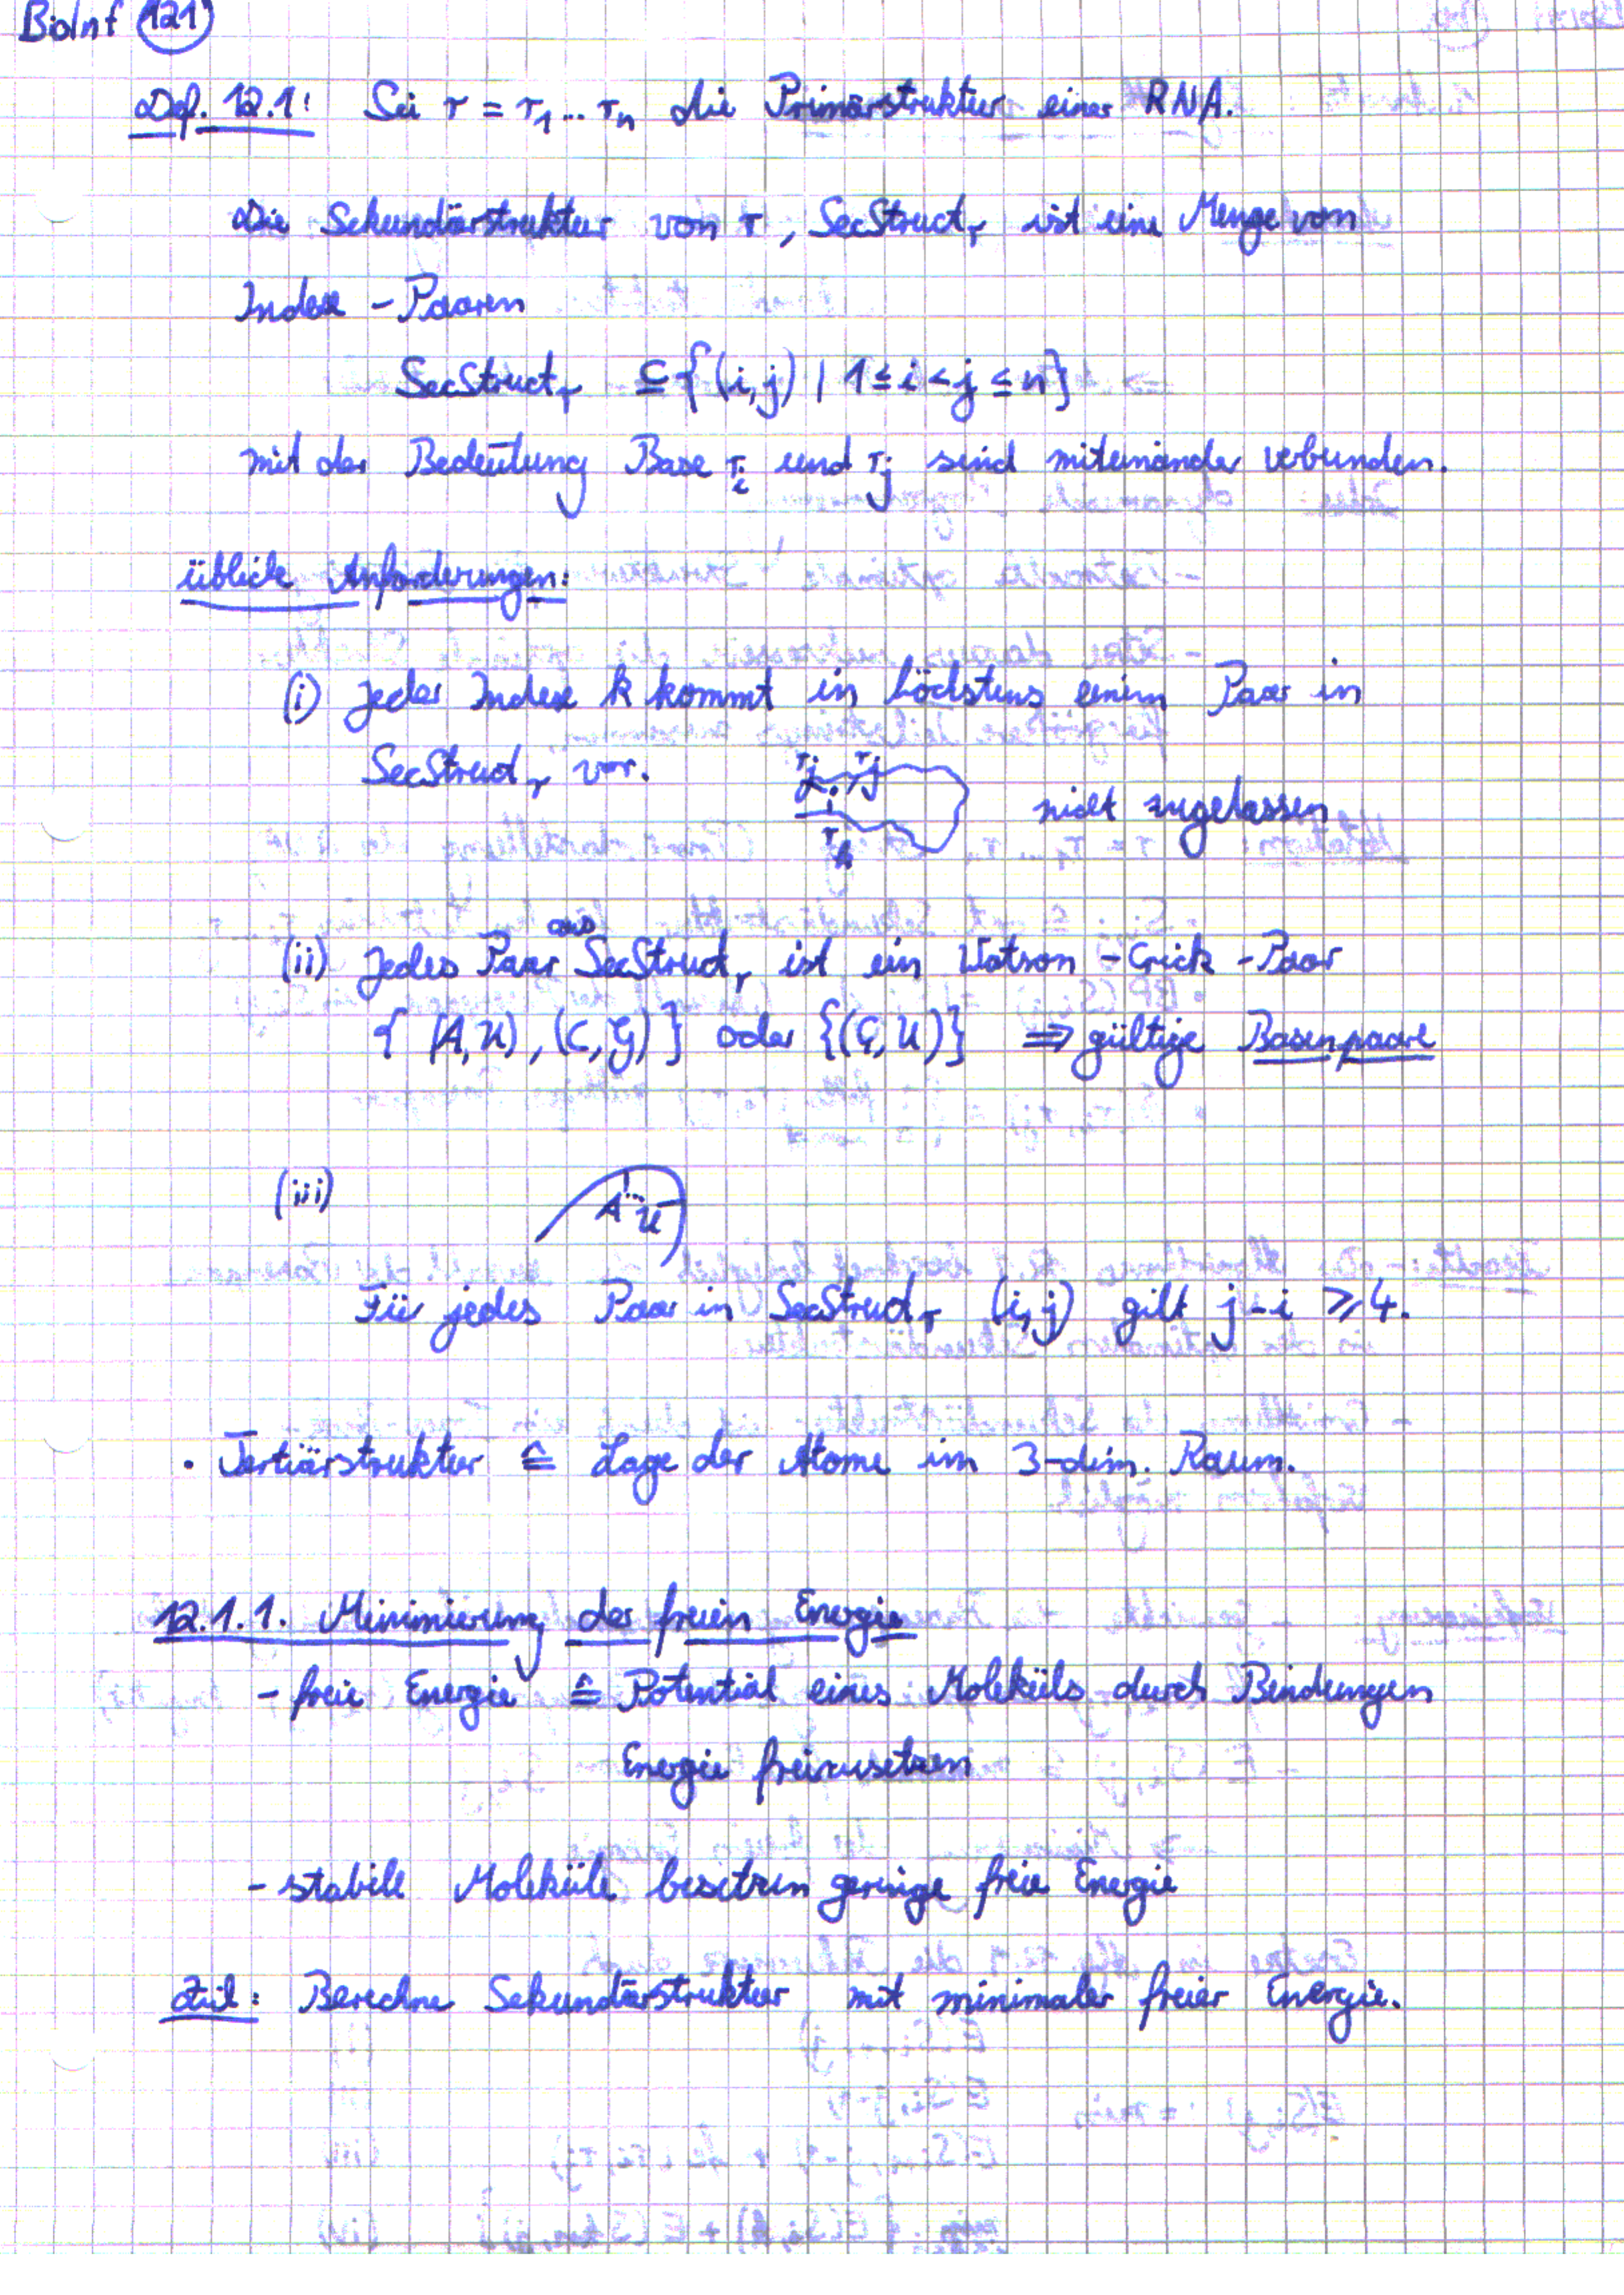 BioInf 121
Def. 12.1: Sei r = r₁ ... rₙ die Primärstruktur einer RNA.
Die Sekundärstruktur von r, SecStruct_r ist eine Menge von
Index - Paaren
SecStruct_r ⊆ {(i,j) | 1 ≤ i < j ≤ n}
mit der Bedeutung Base r_i und r_j sind miteinander verbunden.
übliche Anforderungen:
(i) Jeder Index k kommt in höchstens einem Paar in
SecStruct_r vor.
r_j
r_k
nicht zugelassen
aus
(ii) Jedes Paar SecStruct_r ist ein Watson - Crick - Paar
{ (A,U), (C,G) } oder {(G,U)} ⇒ gültige Basenpaare
(iii)
A U
Für jedes Paar in SecStruct_r (i,j) gilt j - i ≥ 4.
· Tertiärstruktur ≙ Lage der Atome im 3-dim. Raum.
12.1.1. Minimierung der freien Energie
- freie Energie ≙ Potential eines Moleküls durch Bindungen
Energie freizusetzen
- stabile Moleküle besitzen geringe freie Energie
Ziel: Berechne Sekundärstruktur mit minimaler freier Energie.